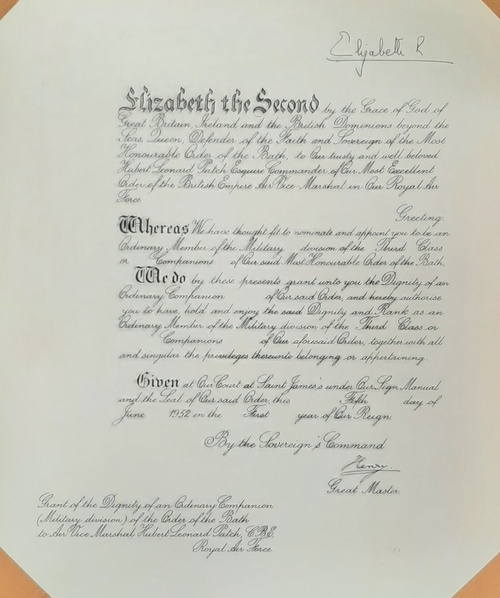 Elizabeth R
Elizabeth the Second by the Grace of God of
Great Britain, Ireland and the British Dominions beyond the
Seas, Queen, Defender of the Faith and Sovereign of the Most
Honourable Order of the Bath, to Our trusty and well beloved
Hubert Leonard Patch Esquire Commander of Our Most Excellent
Order of the British Empire Air Vice Marshal in Our Royal Air
Force
Greeting
Whereas We have thought fit to nominate and appoint you to be an
Ordinary Member of the Military division of the Third Class
or Companions of Our said Most Honourable Order of the Bath
We do by these presents grant unto you the Dignity of an
Ordinary Companion of Our said Order, and hereby authorise
you to have, hold and enjoy the said Dignity and Rank as an
Ordinary Member of the Military division of the Third Class or
Companions of Our aforesaid Order, together with all
and singular the privileges thereunto belonging or appertaining.
Given at Our Court at Saint James's under Our Sign Manual
and the Seal of Our said Order, this Fifth day of
June 1952 in the First year of Our Reign
By the Sovereign's Command
Henry
Great Master
Grant of the Dignity of an Ordinary Companion
(Military division) of the Order of the Bath
to Air Vice Marshal Hubert Leonard Patch, C.B.E.
Royal Air Force